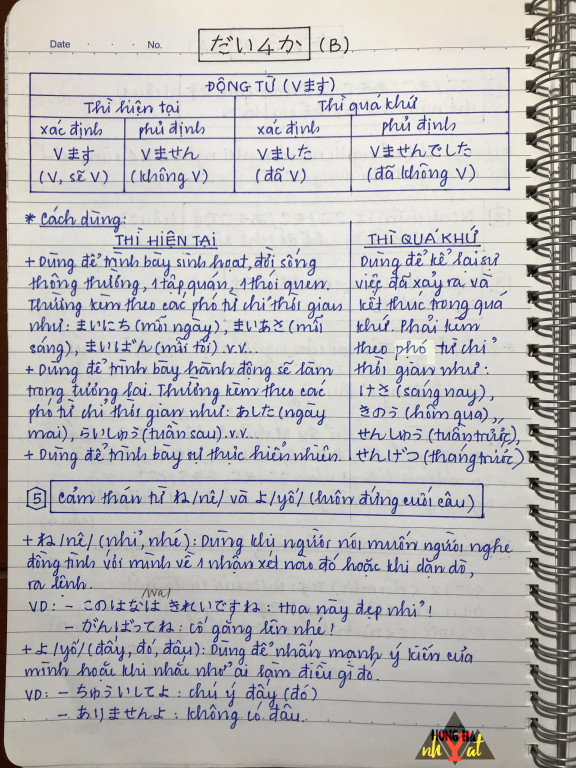 Date . . . No. だい4か (B)
ĐỘNG TỪ (Vます)
Thì hiện tại Thì quá khứ
xác định phủ định xác định phủ định
Vます Vません Vました Vませんでした
(V, sẽ V) (không V) (đã V) (đã không V)
* Cách dùng:
THÌ HIỆN TẠI
+ Dùng để trình bày sinh hoạt, đời sống
thông thường, 1 tập quán, 1 thói quen.
Thường kèm theo các phó từ chỉ thời gian
như: まいにち (mỗi ngày); まいあさ (mỗi
sáng), まいばん (mỗi tối) .v.v...
+ Dùng để trình bày hành động sẽ làm
trong tương lai. Thường kèm theo các
phó từ chỉ thời gian như: あした (ngày
mai), らいしゅう (tuần sau) .v.v...
+ Dùng để trình bày sự thực hiển nhiên.
THÌ QUÁ KHỨ
Dùng để kể lại sự
việc đã xảy ra và
kết thúc trong quá
khứ. Phải kèm
theo phó từ chỉ
thời gian như:
けさ (sáng nay),
きのう (hôm qua),
せんしゅう (tuần trước),
せんげつ (tháng trước)
5 Cảm thán từ ね /nê/ và よ /yố/ (luôn đứng cuối câu)
+ ね /nê/ (nhỉ, nhé): Dùng khi người nói muốn người nghe
đồng tình với mình về 1 nhận xét nào đó hoặc khi dặn dò,
ra lệnh.
/wa/
VD: - このはなは きれいですね: Hoa này đẹp nhỉ!
- がんばってね: Cố gắng lên nhé!
+ よ /yố/ (đấy, đó, đâu): Dùng để nhấn mạnh ý kiến của
mình hoặc khi nhắc nhở ai làm điều gì đó.
VD: - ちゅういしてよ: chú ý đấy (đó)
- ありませんよ: Không có đâu.
HONG HA
nhYat